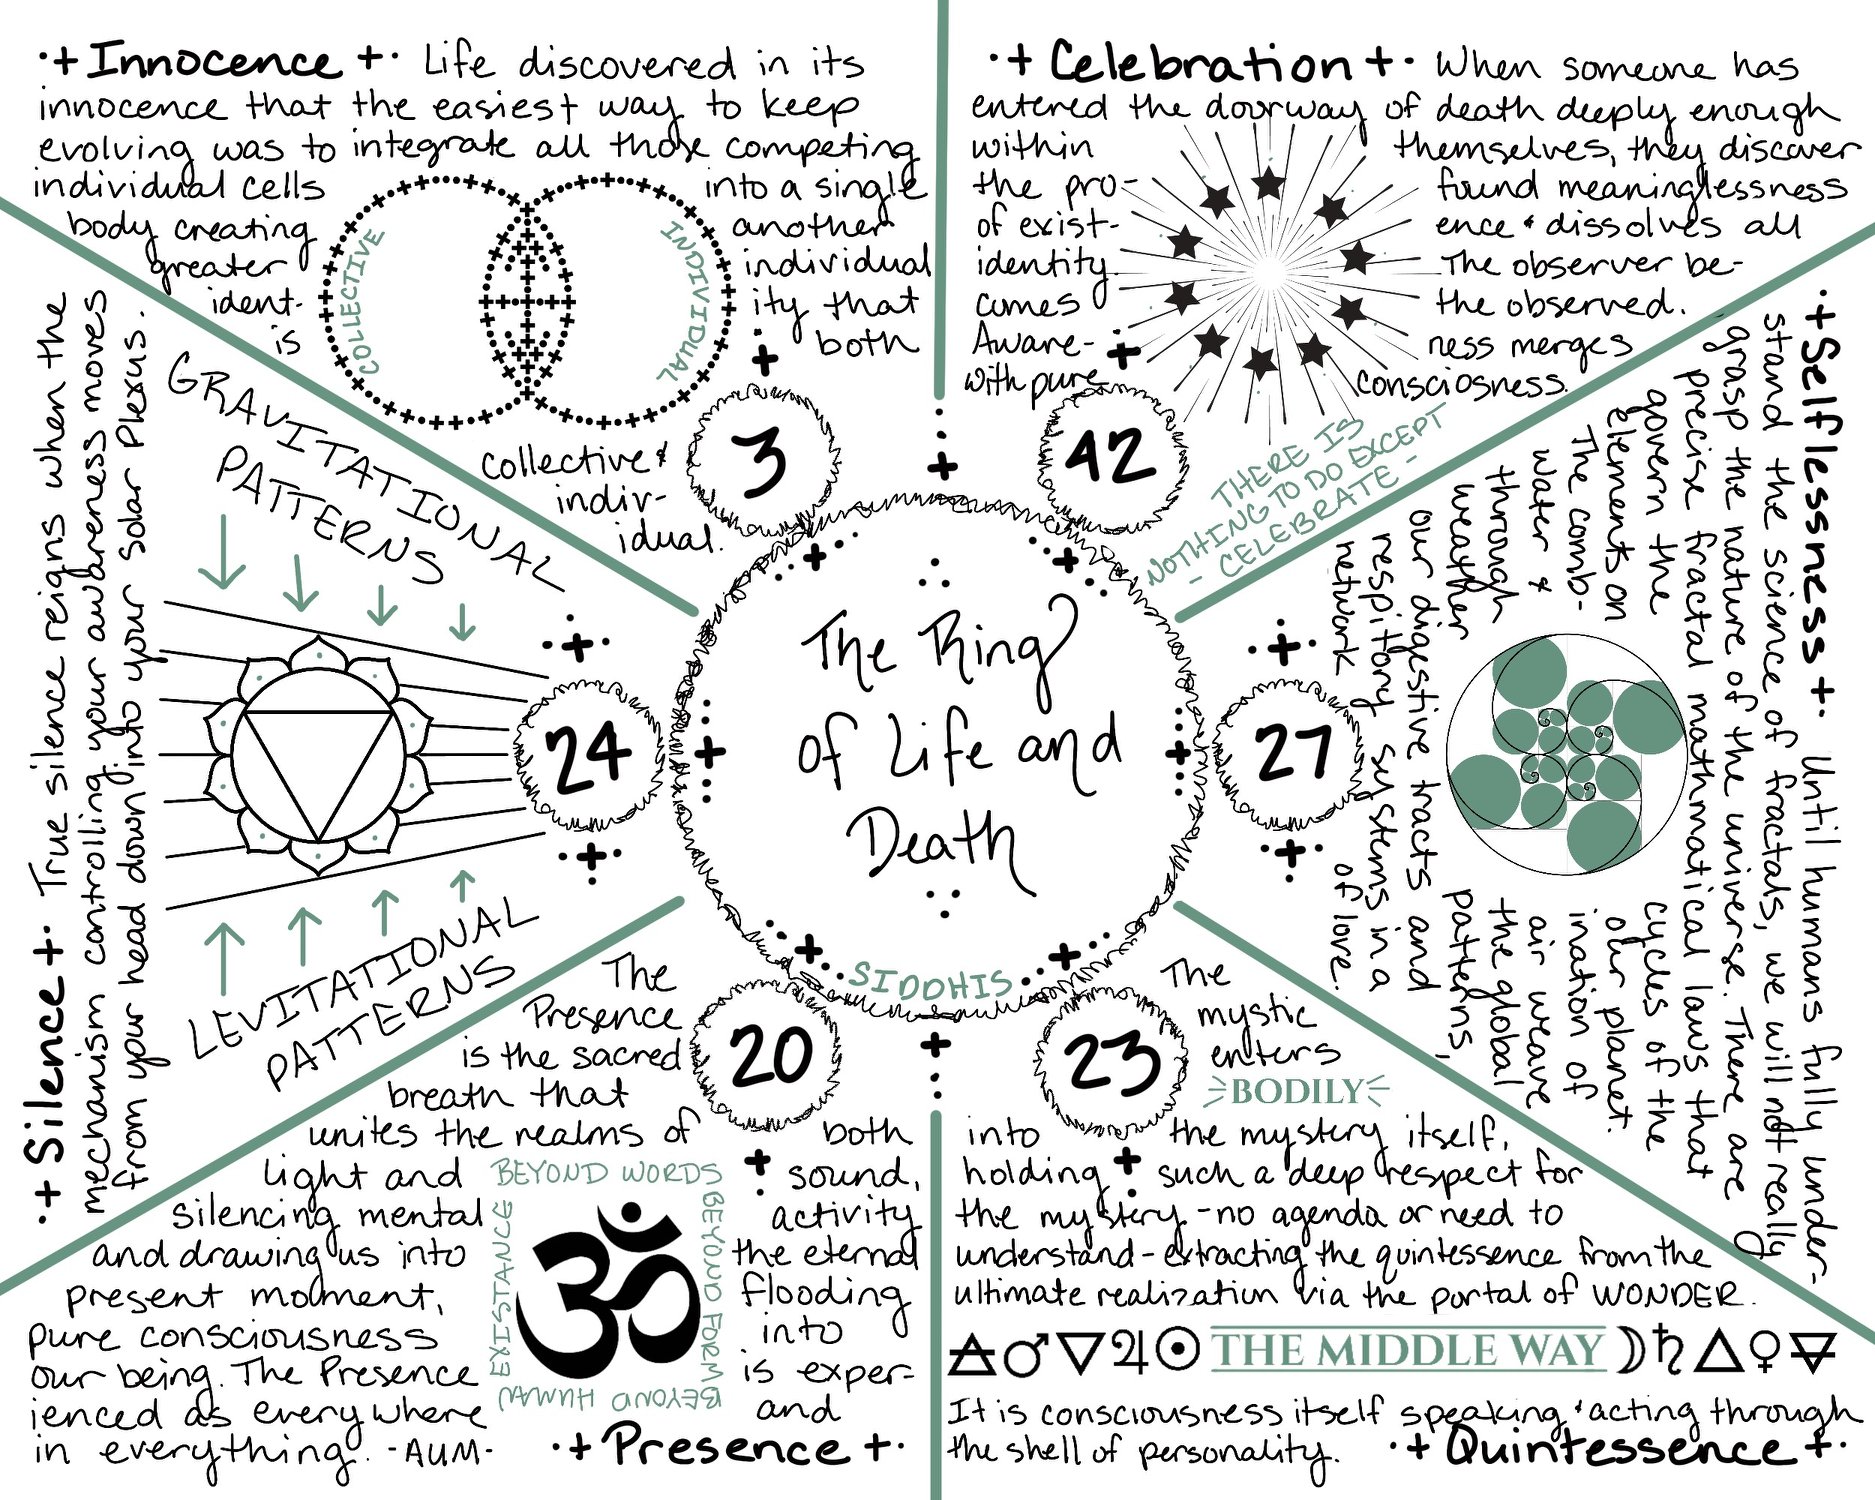 ·+ Innocence +· Life discovered in its
innocence that the easiest way to keep
evolving was to integrate all those competing
individual cells into a single
body creating another
greater individual
ident- ity that
is both
collective &
indiv-
idual.
COLLECTIVE
INDIVIDUAL
3
·+ Celebration +· When someone has
entered the doorway of death deeply enough
within themselves, they discover
the pro- found meaninglessness
of exist- ence & dissolves all
identity. The observer be-
comes the observed.
Aware- ness merges
with pure consciosness.
THERE IS
NOTHING TO DO EXCEPT
- CELEBRATE -
42
·+ Selflessness +· Until humans fully under-
stand the science of fractals, we will not really
grasp the nature of the universe. There are
precise fractal mathmatical laws that
govern the cycles of the
elements on our planet.
The comb- ination of
water & air weave
through the global
weather patterns,
our digestive tracts and
respitory systems in a
network of love.
27
The Ring
of Life and
Death
SIDDHIS
·+ Silence +· True silence reigns when the
mechanism controlling your awareness moves
from your head down into your Solar Plexus.
GRAVITATIONAL
PATTERNS
LEVITATIONAL
PATTERNS
24
The
Presence
is the sacred
breath that
unites the realms of both
light and sound,
silencing mental activity
and drawing us into the eternal
present moment, flooding
pure consciousness into
our being. The Presence is exper-
ienced as everywhere and
in everything. -AUM-
·+ Presence +·
BEYOND WORDS
BEYOND FORM
BEYOND HUMAN
EXISTANCE
ॐ
20
The
mystic
enters
BODILY
into the mystery itself,
holding such a deep respect for
the mystery - no agenda or need to
understand - extracting the quintessence from the
ultimate realization via the portal of WONDER.
🜁♂▽♃☉ THE MIDDLE WAY ☽♄△♀🜃
It is consciousness itself speaking & acting through
the shell of personality. ·+ Quintessence +·
23